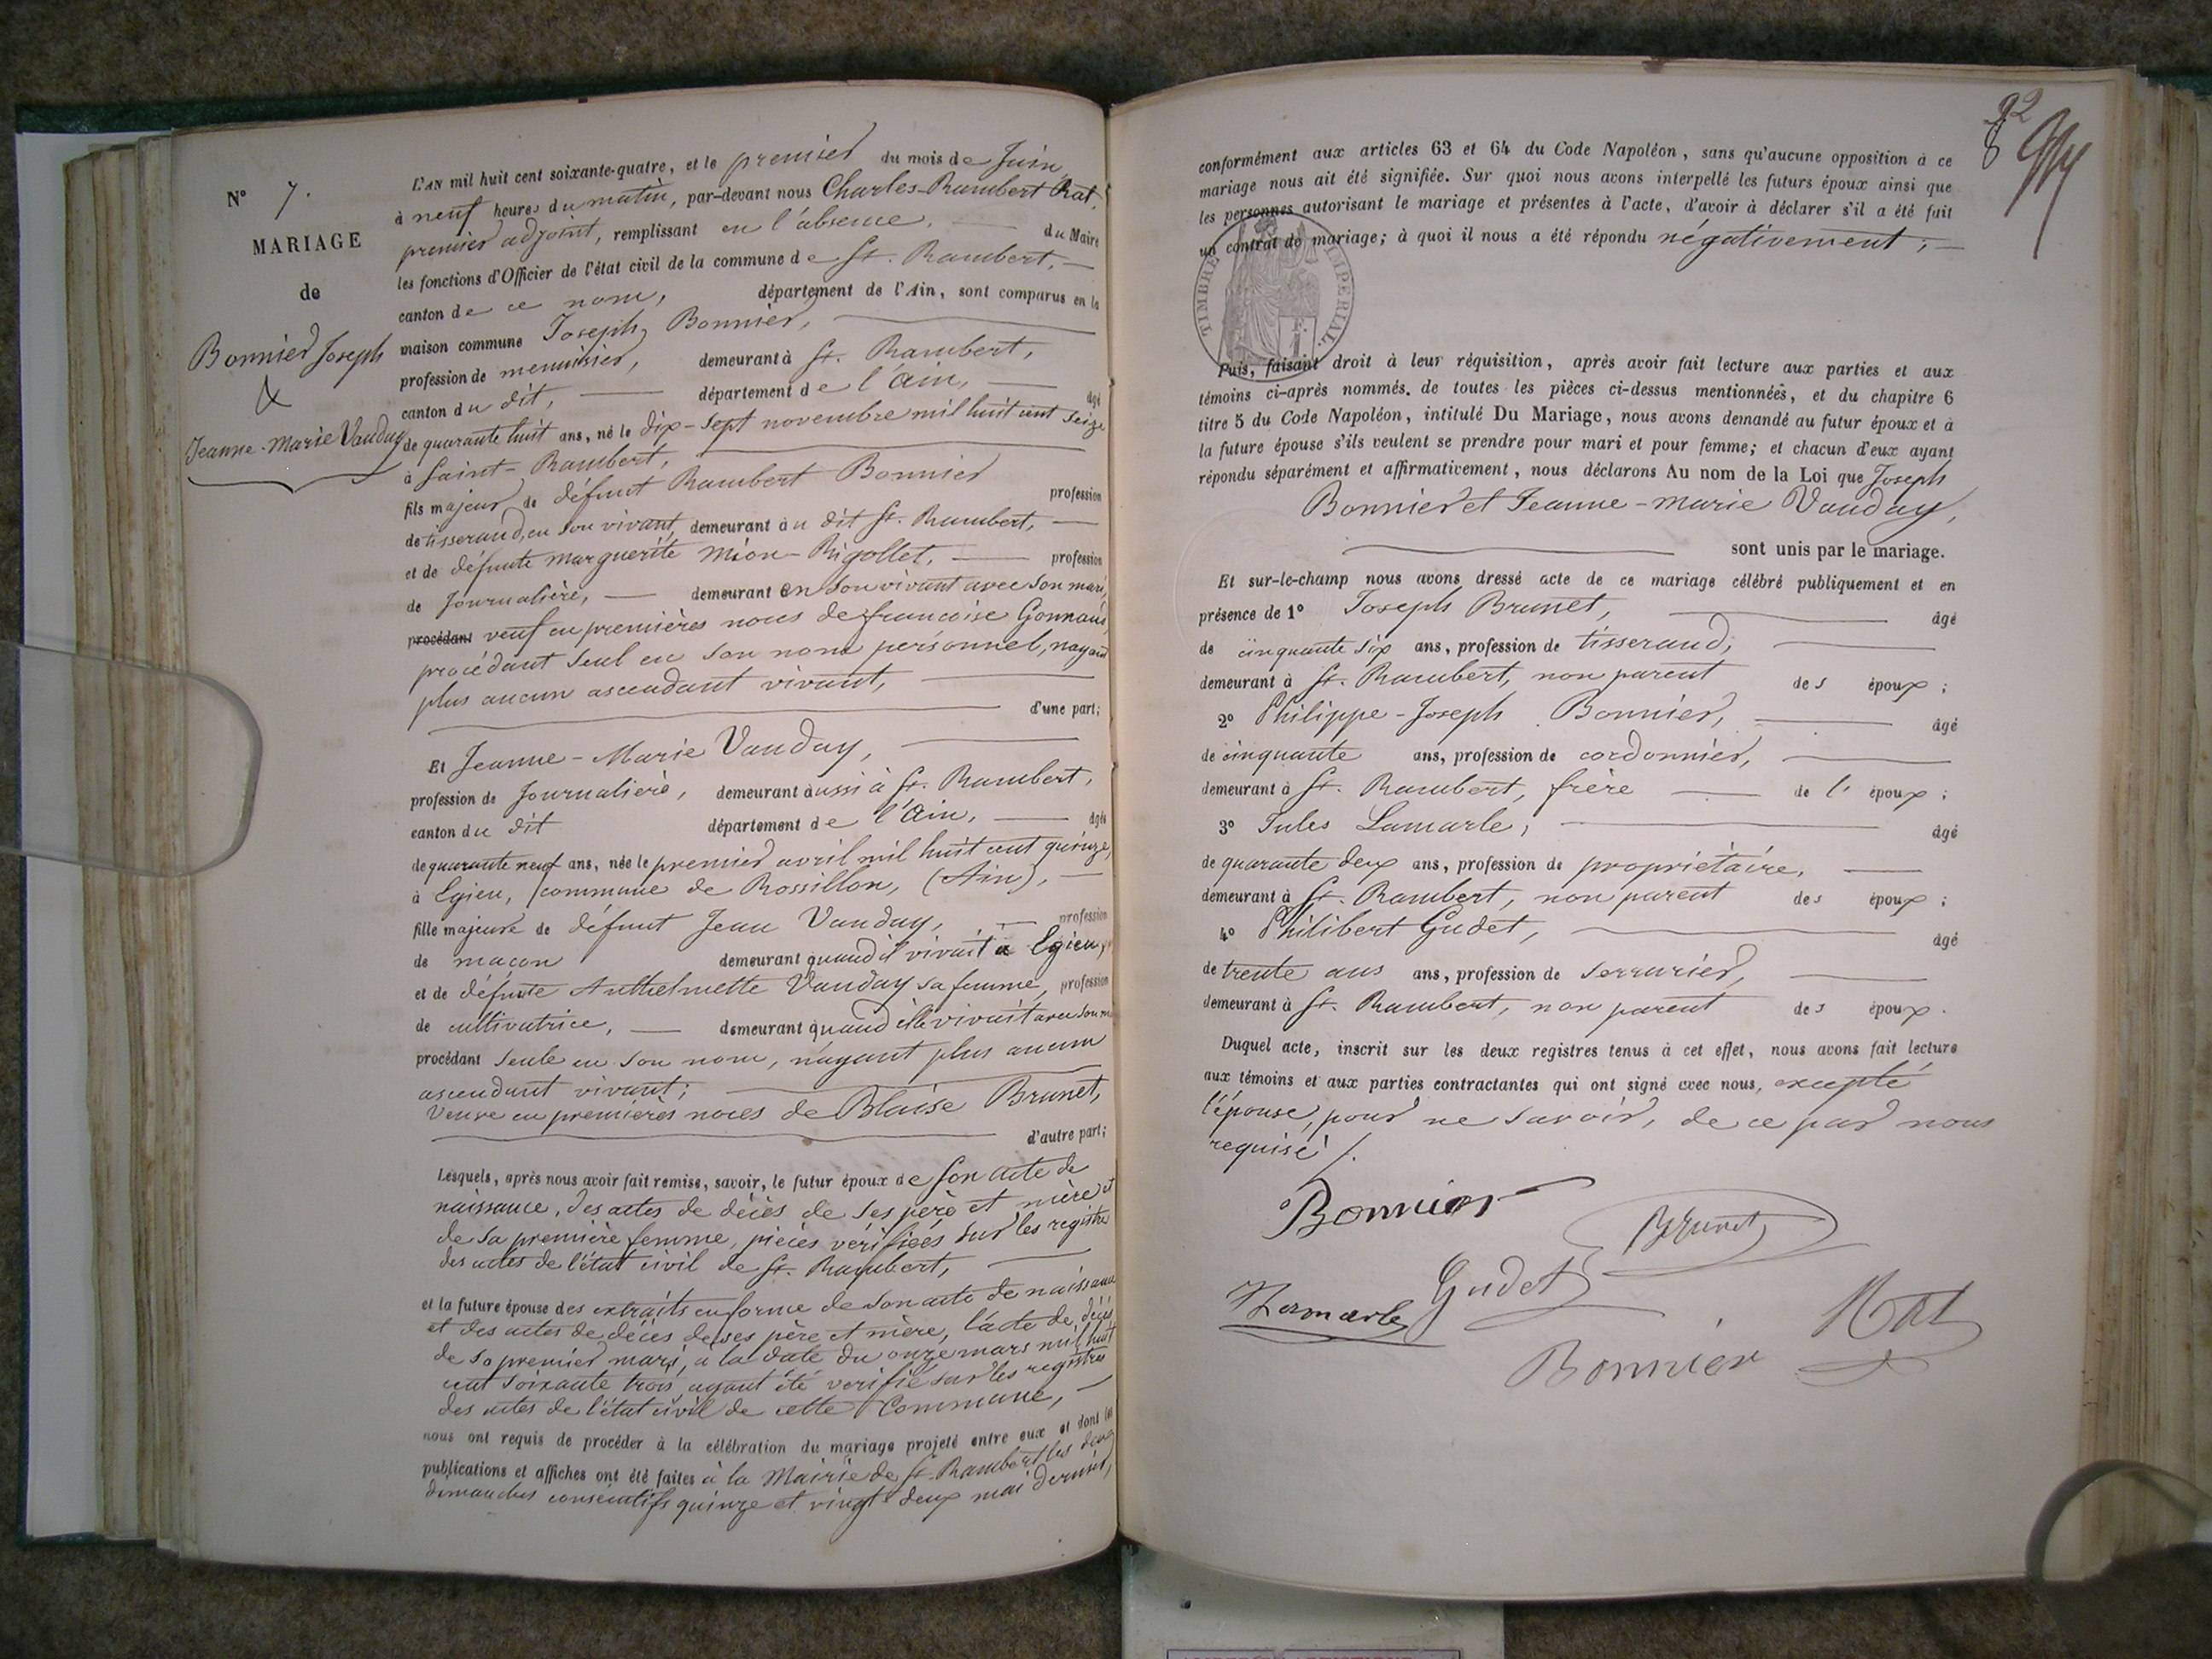 N° 7.
MARIAGE
de
Bonnier Joseph
&
Jeanne-Marie Vauday
L'AN mil huit cent soixante-quatre, et le premier du mois de Juin,
à neuf heures du matin, par-devant nous Charles-Rambert Rat,
premier adjoint, remplissant en l'absence, du Maire
les fonctions d'Officier de l'état civil de la commune de St. Rambert,
canton de ce nom, département de l'Ain, sont comparus en la
maison commune Joseph Bonnier,
profession de menuisier, demeurant à St. Rambert,
canton du dit, département de l'Ain, âgé
de quarante huit ans, né le dix-sept novembre mil huit cent seize
à Saint-Rambert,
fils majeur de défunt Rambert Bonnier profession
de tisserand, en son vivant, demeurant au dit St. Rambert,
et de défunte Marguerite Mion-Rigollet, profession
de Journalière, demeurant en son vivant avec son mari,
procédant veuf en premières noces de françoise Gonnand,
procédant seul en son nom personnel, nayant
plus aucun ascendant vivant,
d'une part;
Et Jeanne-Marie Vauday,
profession de Journalière, demeurant aussi à St. Rambert,
canton du dit département de l'Ain, âgée
de quarante neuf ans, née le premier avril mil huit cent quinze,
à Egieu, commune de Rossillon, (Ain),
fille majeure de défunt Jean Vauday, profession
de maçon demeurant quand il vivait à Egieu,
et de défunte Anthelmette Vauday sa femme, profession
de cultivatrice, demeurant quand elle vivait avec son m
procédant seule en son nom, n'ayant plus aucun
ascendant vivant;
Veuve en premières noces de Blaise Brunet,
d'autre part;
Lesquels, après nous avoir fait remise, savoir, le futur époux de son acte de
naissance, des actes de décès de ses père et mère et
de sa première femme, pièces vérifiées sur les registres
des actes de l'état civil de St. Rambert,
et la future épouse des extraits en forme de son acte de naissance
et des actes de décès de ses père et mère, l'acte de décès
de so premier mari, à la date du onze mars mil huit
cent soixante trois, ayant été verifié sur les registres
des actes de l'état civil de cette Commune,
nous ont requis de procéder à la célébration du mariage projeté entre eux et dont les
publications et affiches ont été faites à la Mairie de St. Rambert les deux
dimanches consécutifs quinze et vingt deux mai dernier,
92
conformément aux articles 63 et 64 du Code Napoléon, sans qu'aucune opposition à ce
mariage nous ait été signifiée. Sur quoi nous avons interpellé les futurs époux ainsi que
les personnes autorisant le mariage et présentes à l'acte, d'avoir à déclarer s'il a été fait
un contrat de mariage; à quoi il nous a été répondu négativement;
TIMBRE IMPERIAL
Puis, faisant droit à leur réquisition, après avoir fait lecture aux parties et aux
témoins ci-après nommés, de toutes les pièces ci-dessus mentionnées, et du chapitre 6
titre 5 du Code Napoléon, intitulé Du Mariage, nous avons demandé au futur époux et à
la future épouse s'ils veulent se prendre pour mari et pour femme; et chacun d'eux ayant
répondu séparément et affirmativement, nous déclarons Au nom de la Loi que Joseph
Bonnier et Jeanne-Marie Vauday,
sont unis par le mariage.
Et sur-le-champ nous avons dressé acte de ce mariage célébré publiquement et en
présence de 1° Joseph Brunet, âgé
de cinquante six ans, profession de tisserand,
demeurant à St. Rambert, non parent des époux;
2° Philippe-Joseph Bonnier, âgé
de cinquante ans, profession de cordonnier,
demeurant à St. Rambert, frère de l'époux;
3° Jules Lamarle, âgé
de quarante deux ans, profession de propriétaire,
demeurant à St. Rambert, non parent des époux;
4° Philibert Gudet, âgé
de trente ans ans, profession de Serrurier,
demeurant à St. Rambert, non parent des époux.
Duquel acte, inscrit sur les deux registres tenus à cet effet, nous avons fait lecture
aux témoins et aux parties contractantes qui ont signé avec nous, excepté
l'épouse, pour ne savoir, de ce par nous
requise /.
Bonnier
Brunet
Gudet
Lamarle
Rat
Bonnier